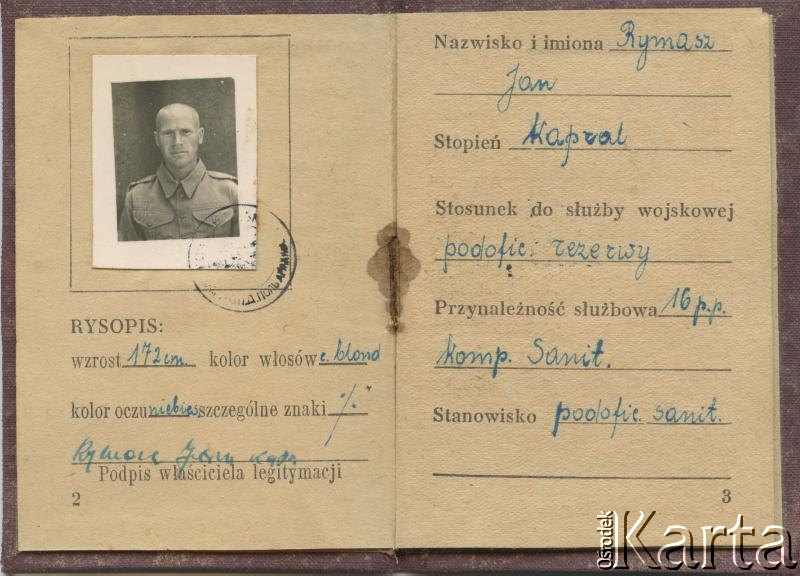 RYSOPIS:
wzrost 172 cm. kolor włosów c. blond
kolor oczu niebies. szczególne znaki %
Rymasz Jan kapr.
Podpis właściciela legitymacji
2
Nazwisko i imiona Rymasz
Jan
Stopień Kapral
Stosunek do służby wojskowej
podofic. rezerwy
Przynależność służbowa 16 p.p.
Komp. Sanit.
Stanowisko podofic. sanit.
3
Ośrodek Karta